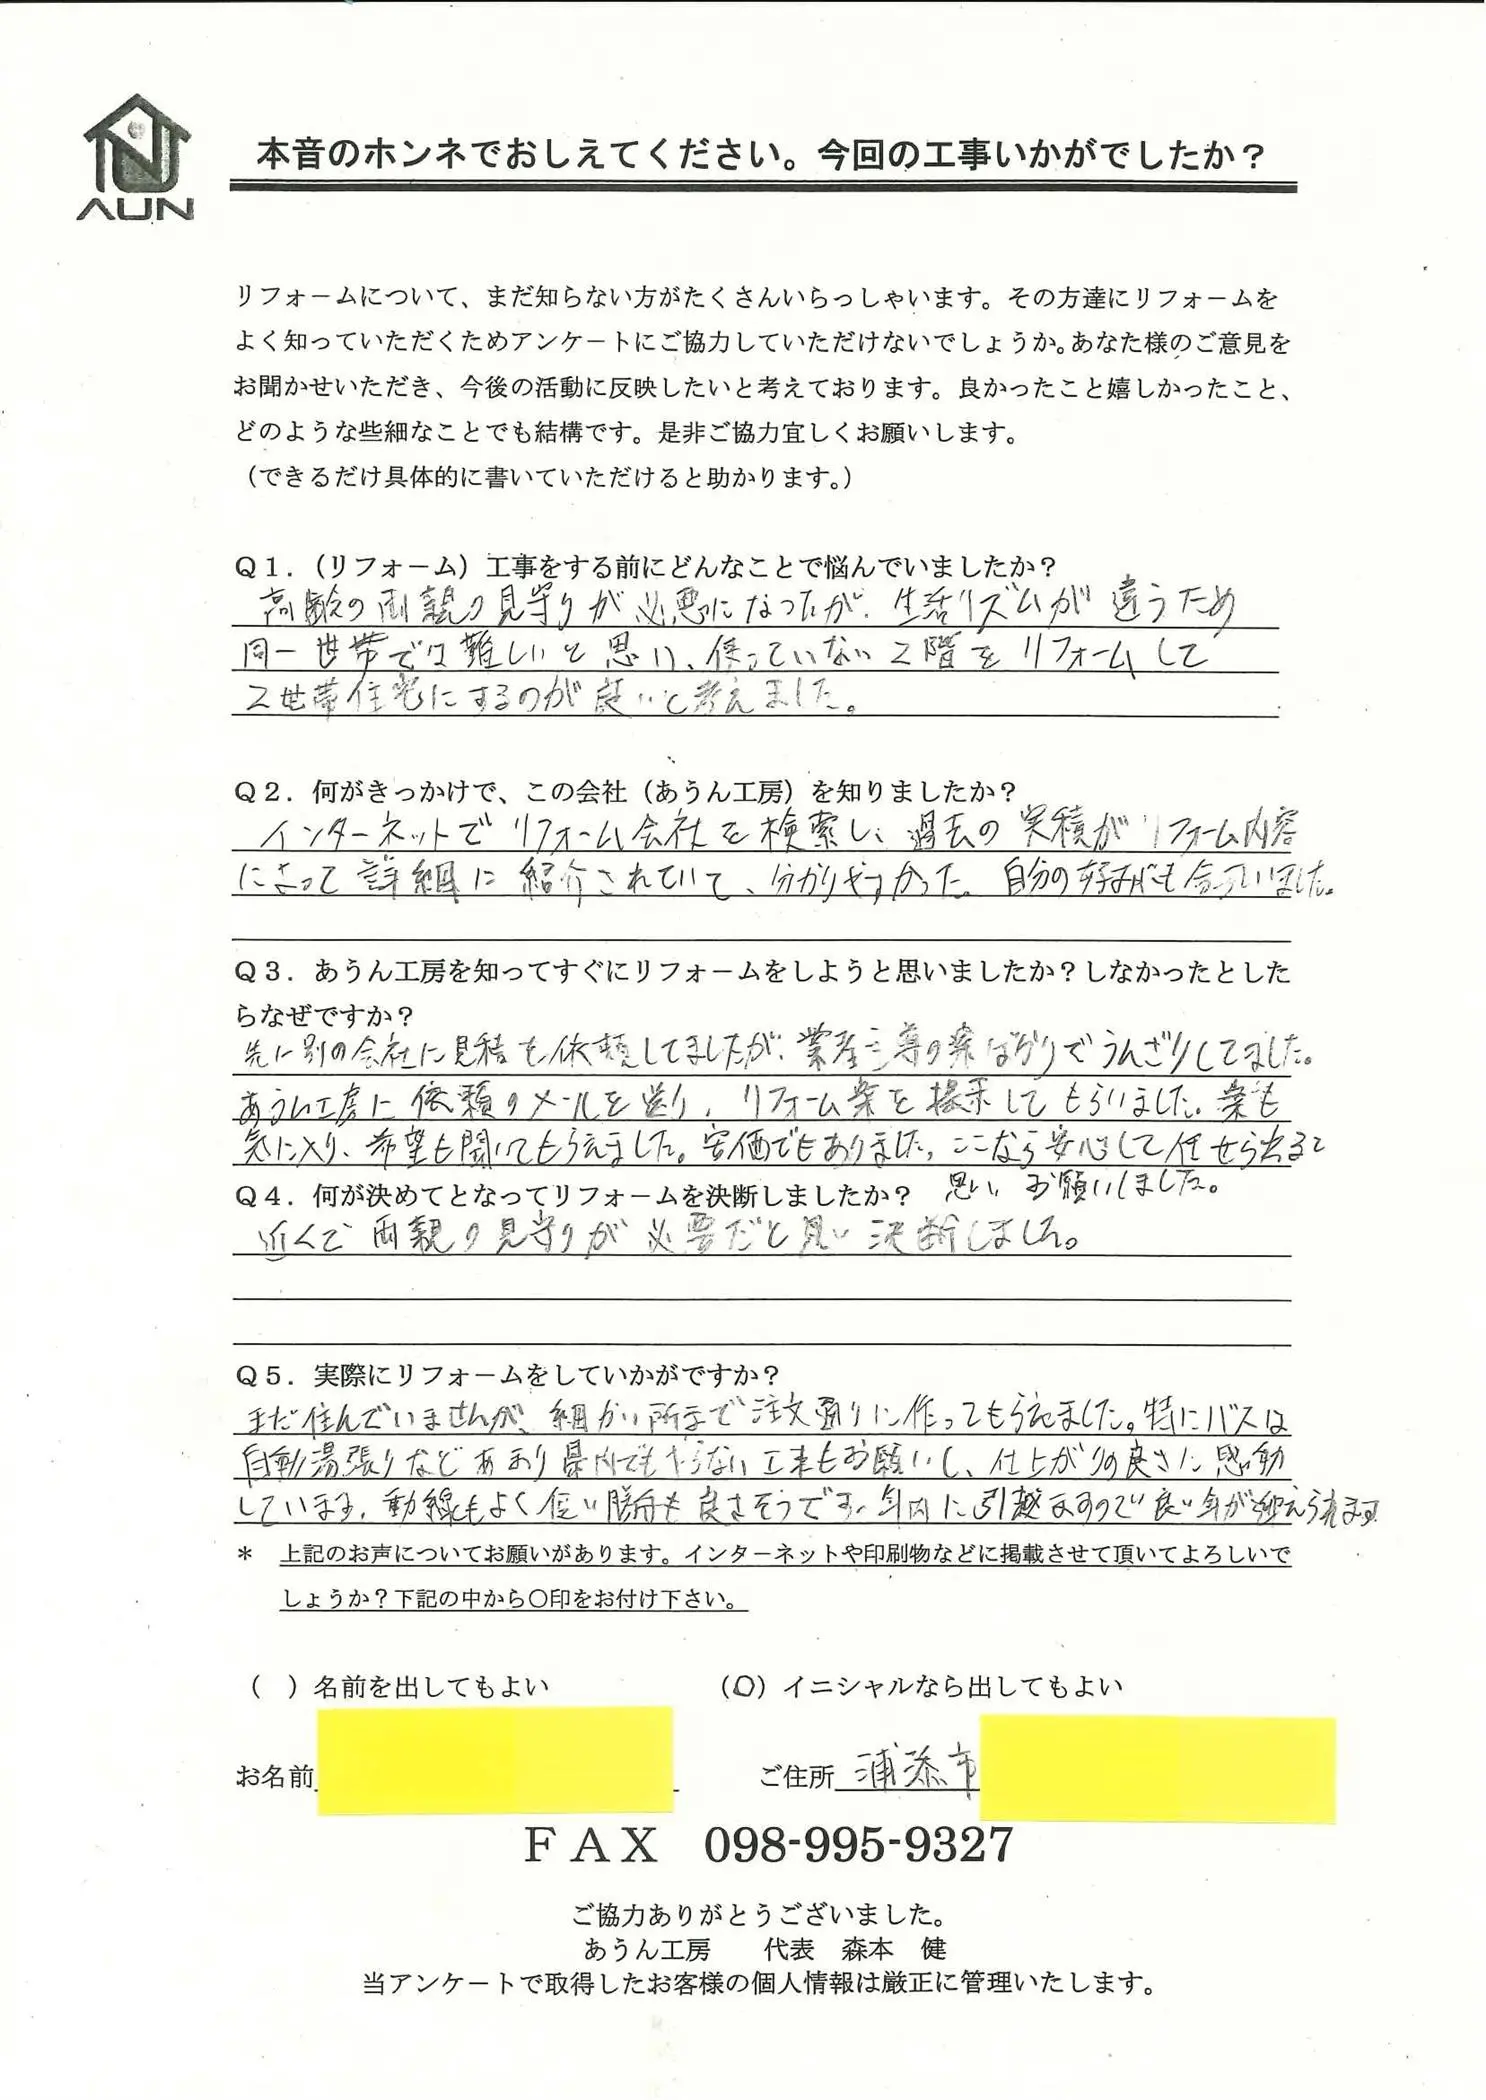 AUN
本音のホンネでおしえてください。今回の工事いかがでしたか？
リフォームについて、まだ知らない方がたくさんいらっしゃいます。その方達にリフォームを
よく知っていただくためアンケートにご協力していただけないでしょうか。あなた様のご意見を
お聞かせいただき、今後の活動に反映したいと考えております。良かったこと嬉しかったこと、
どのような些細なことでも結構です。是非ご協力宜しくお願いします。
（できるだけ具体的に書いていただけると助かります。）
Ｑ１．（リフォーム）工事をする前にどんなことで悩んでいましたか？
高齢の両親の見守りが必要になったが、生活リズムが違うため
同一世帯では難しいと思い、使っていない2階をリフォームして
2世帯住宅にするのが良いと考えました。
Ｑ２．何がきっかけで、この会社（あうん工房）を知りましたか？
インターネットでリフォーム会社を検索し、過去の実積がリフォーム内容
によって詳細に紹介されていて、分かりやすかった。自分の好みにも合っていました。
Ｑ３．あうん工房を知ってすぐにリフォームをしようと思いましたか？しなかったとした
らなぜですか？
先に別の会社に見積を依頼してましたが、業者主導の案ばかりでうんざりしてました。
あうん工房に依頼のメールを送り、リフォーム案を提示してもらいました。案も
気に入り、希望も聞いてもらえました。安価でもありました。ここなら安心して任せられると
思い、お願いしました。
Ｑ４．何が決めてとなってリフォームを決断しましたか？
近くで両親の見守りが必要だと思い決断しました。
Ｑ５．実際にリフォームをしていかがですか？
まだ住んでいませんが、細かい所まで注文通りに作ってもらえました。特にバスは
自動湯張りなどあまり県内でもやらない工事もお願いし、仕上がりの良さに感動
しています。動線もよく使い勝手も良さそうです。年内に引越ますので良い年が迎えられます
＊ 上記のお声についてお願いがあります。インターネットや印刷物などに掲載させて頂いてよろしいで
しょうか？下記の中から〇印をお付け下さい。
（ ）名前を出してもよい （〇）イニシャルなら出してもよい
お名前 ご住所 浦添市
ＦＡＸ 098-995-9327
ご協力ありがとうございました。
あうん工房 代表 森本 健
当アンケートで取得したお客様の個人情報は厳正に管理いたします。